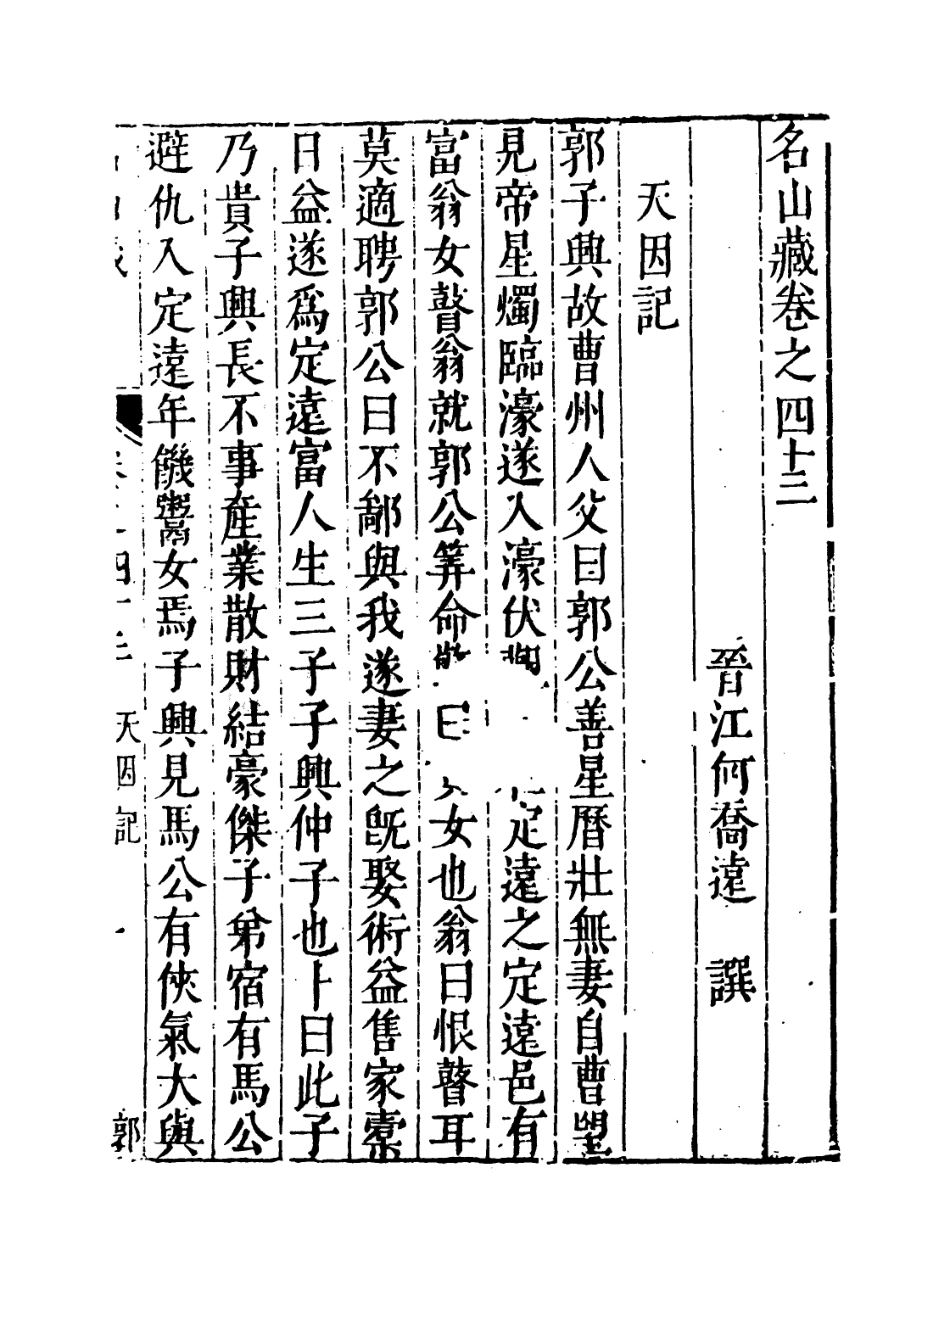 名山藏卷之四十三
晉江何喬遠 譔
天因記
郭子興故曹州人父曰郭公善星曆壯無妻自曹望
見帝星燭臨濠遂入濠伏定遠之定遠邑有
富翁女瞽翁就郭公筭命曰女也翁曰恨瞽耳
莫適聘郭公曰不鄙與我遂妻之旣娶術益售家橐
日益遂爲定遠富人生三子子興仲子也卜曰此子
乃貴子興長不事產業散財結豪傑子弟宿有馬公
避仇入定遠年饑鬻女焉子興見馬公有俠氣大與
天因記 一 郭